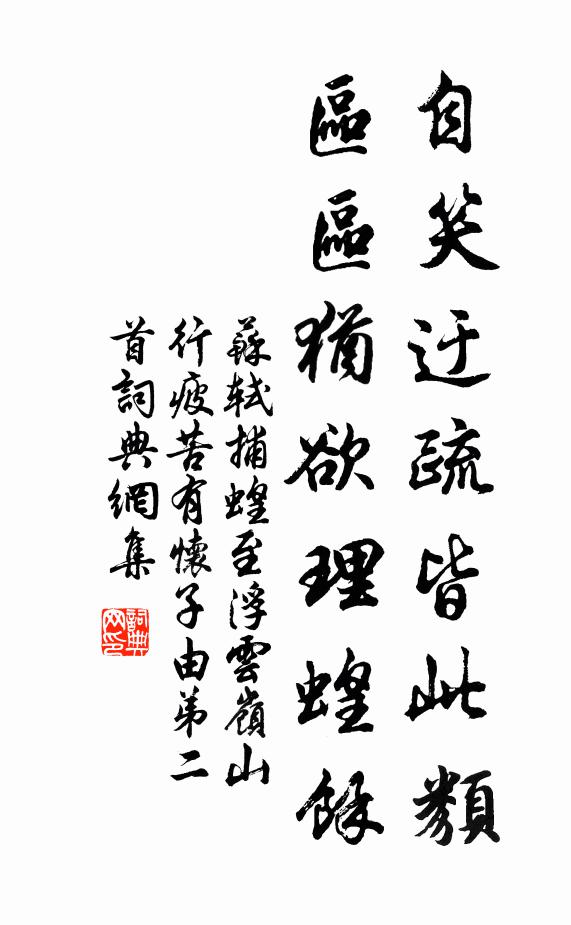 自笑迂疏皆此類
區區猶欲理蝗餘
蘇軾捕蝗至浮雲嶺山
行疲苶有懷子由第二
首詞典網集
詞典
网印